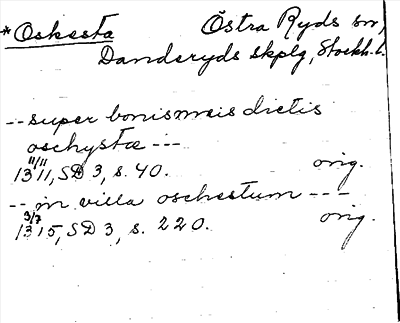 *Oskesta Östra Ryds sn,
Danderyds skplg, Stockh. l.
-- super bonis meis dictis
oschystæ ---
11/11
1311, SD 3, s. 40. orig.
-- in villa oschestum ---
3/7
1315, SD 3, s. 220. orig.